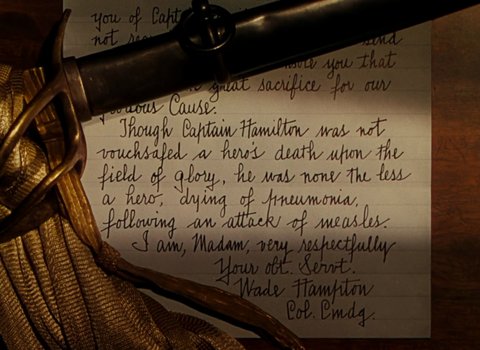 you of Capt
not
you that
great sacrifice for our
Cause.
Though Captain Hamilton was not
vouchsafed a hero's death upon the
field of glory, he was none the less
a hero, dying of pneumonia,
following an attack of measles.
I am, Madam, very respectfully
Your obt. Servt.
Wade Hampton
Col. Cmdg.